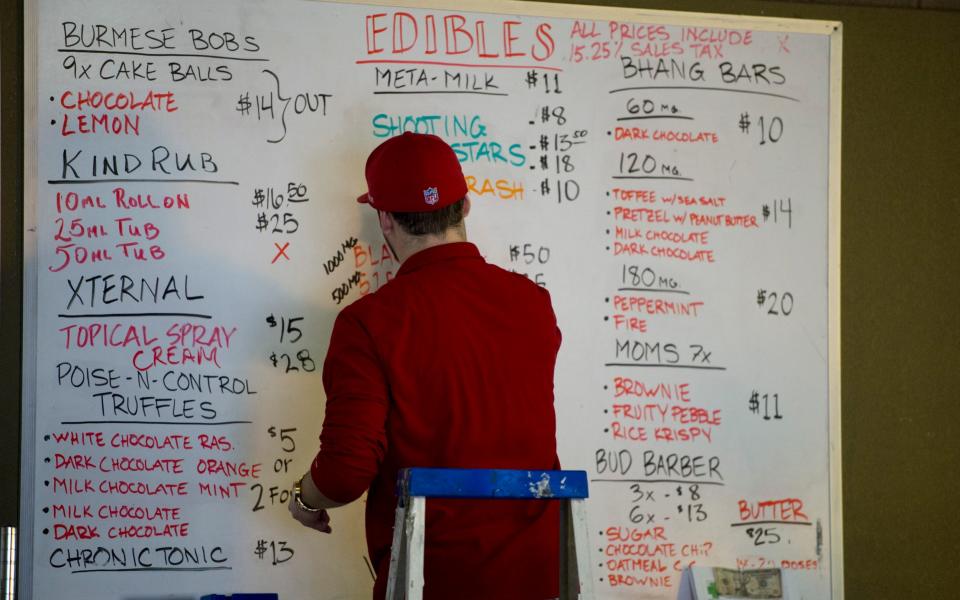 BURMESE BOBS
9X CAKE BALLS
• CHOCOLATE
• LEMON
$14 } OUT
KIND RUB
10ML ROLL ON $16.50
25ML TUB $25
50ML TUB X
XTERNAL
TOPICAL SPRAY $15
CREAM $28
POISE-N-CONTROL
TRUFFLES
• WHITE CHOCOLATE RAS. $5
• DARK CHOCOLATE ORANGE or
• MILK CHOCOLATE MINT 2 FO
• MILK CHOCOLATE
• DARK CHOCOLATE
CHRONIC TONIC $13
EDIBLES
ALL PRICES INCLUDE
15.25% SALES TAX
META-MILK $11
SHOOTING - $8
STARS - $13.50
- $18
RASH - $10
1000 MG BLA $50
500 MG
BHANG BARS
60 MG.
• DARK CHOCOLATE $10
120 MG.
• TOFFEE W/ SEA SALT
• PRETZEL W/ PEANUT BUTTER $14
• MILK CHOCOLATE
• DARK CHOCOLATE
180 MG.
• PEPPERMINT $20
• FIRE
MOMS 7X
• BROWNIE
• FRUITY PEBBLE $11
• RICE KRISPY
BUD BARBER
3X - $8
6X - $13
• SUGAR
• CHOCOLATE CHIP
• OATMEAL C.C.
• BROWNIE
BUTTER
$25.